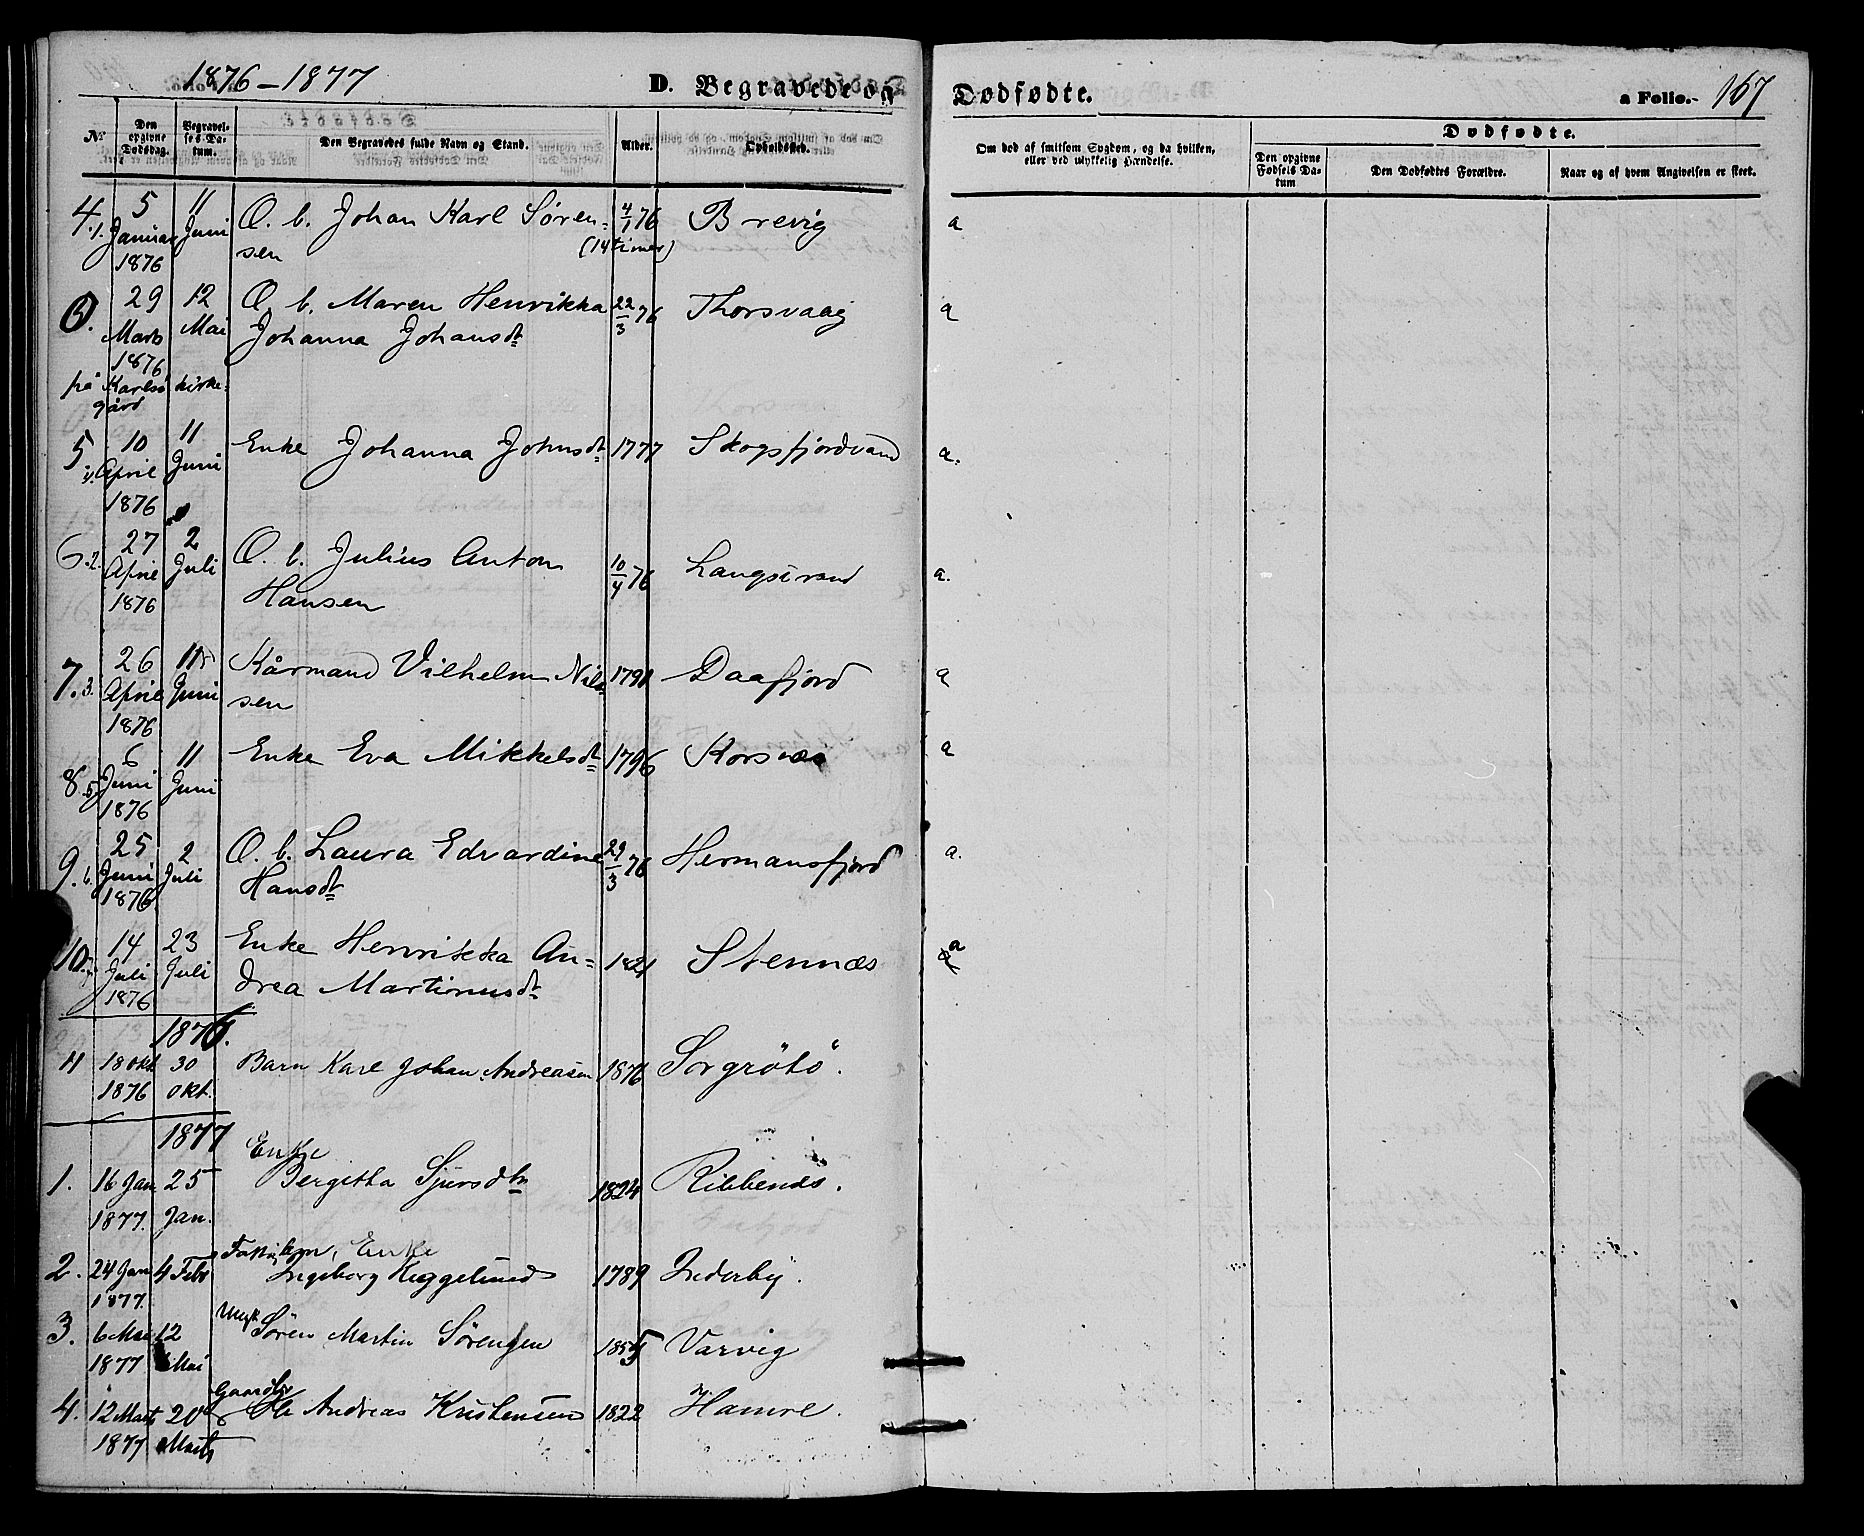 1876-1877
D. Begravede og Dødfødte.
a Folio. 167
No
Den opgivne Dødsdag.
Begravelses-Datum.
Den Begravedes fulde Navn og Stand.
Alder.
Opholdssted.
Om død af smitsom Sygdom, og da hvilken, eller ved ulykkelig Hændelse.
Dødfødte.
Den opgivne Fødsels Datum
Den Dødfødtes Forældre.
Naar og af hvem Angivelsen er skeet.
4. 1. 5 Januar 1876 11 Juni O. b. Johan Karl Søren- 4/1 76 Brevig a
sen (14 timer)
29 Marts 1876 12 Mai O. b. Maren Henrikka 22/3 76 Thorsvaag a
Johanna Johansdt
på Karlsö kirke-
gård
5 10 April 1876 11 Juni Enke Johanna Johnsdt 1777 Skogsfjordvand a.
6. 2. 27 April 1876 2 Juli O. b. Julius Anton 10/4 76 Langstrand a.
Hansen
7. 3. 26 April 1876 11 Juni Kårmand Vilhelm Nil- Daafjord a
sen
8 5. 6 Juni 1876 11 Juni Enke Eva Mikkelsdt 1796 Korsnæs a
9. 6. 25 Juni 1876 2 Juli O. b. Laura Edvardine 29/3 76 Hermansfjord a.
Hansdt
10. 14 Juli 1876 23 Juli Enke Henrikka An- 1821 Stennæs a
drea Martinusdt
1876.
11 18 Okt. 1876 30 Okt. Barn Karl Johan Andreasen 1876 Sorgrötö.
1877
Enke
1. 16 Jan 1877. 25 Jan. Bergitha Sjursdtr 1824 Ribbenæs.
Enke
2. 24 Jan 1877. 4 Febr Ingeborg Heggelund 1789 Inderby.
Ungk
3. 6 Mai 1877 12 Mai Sören Martin Sörensen 1855 Varvig
Gaardbr
4. 12 Marts 1877 20 Marts Ole Andreas Kristensen 1822 Hamre.